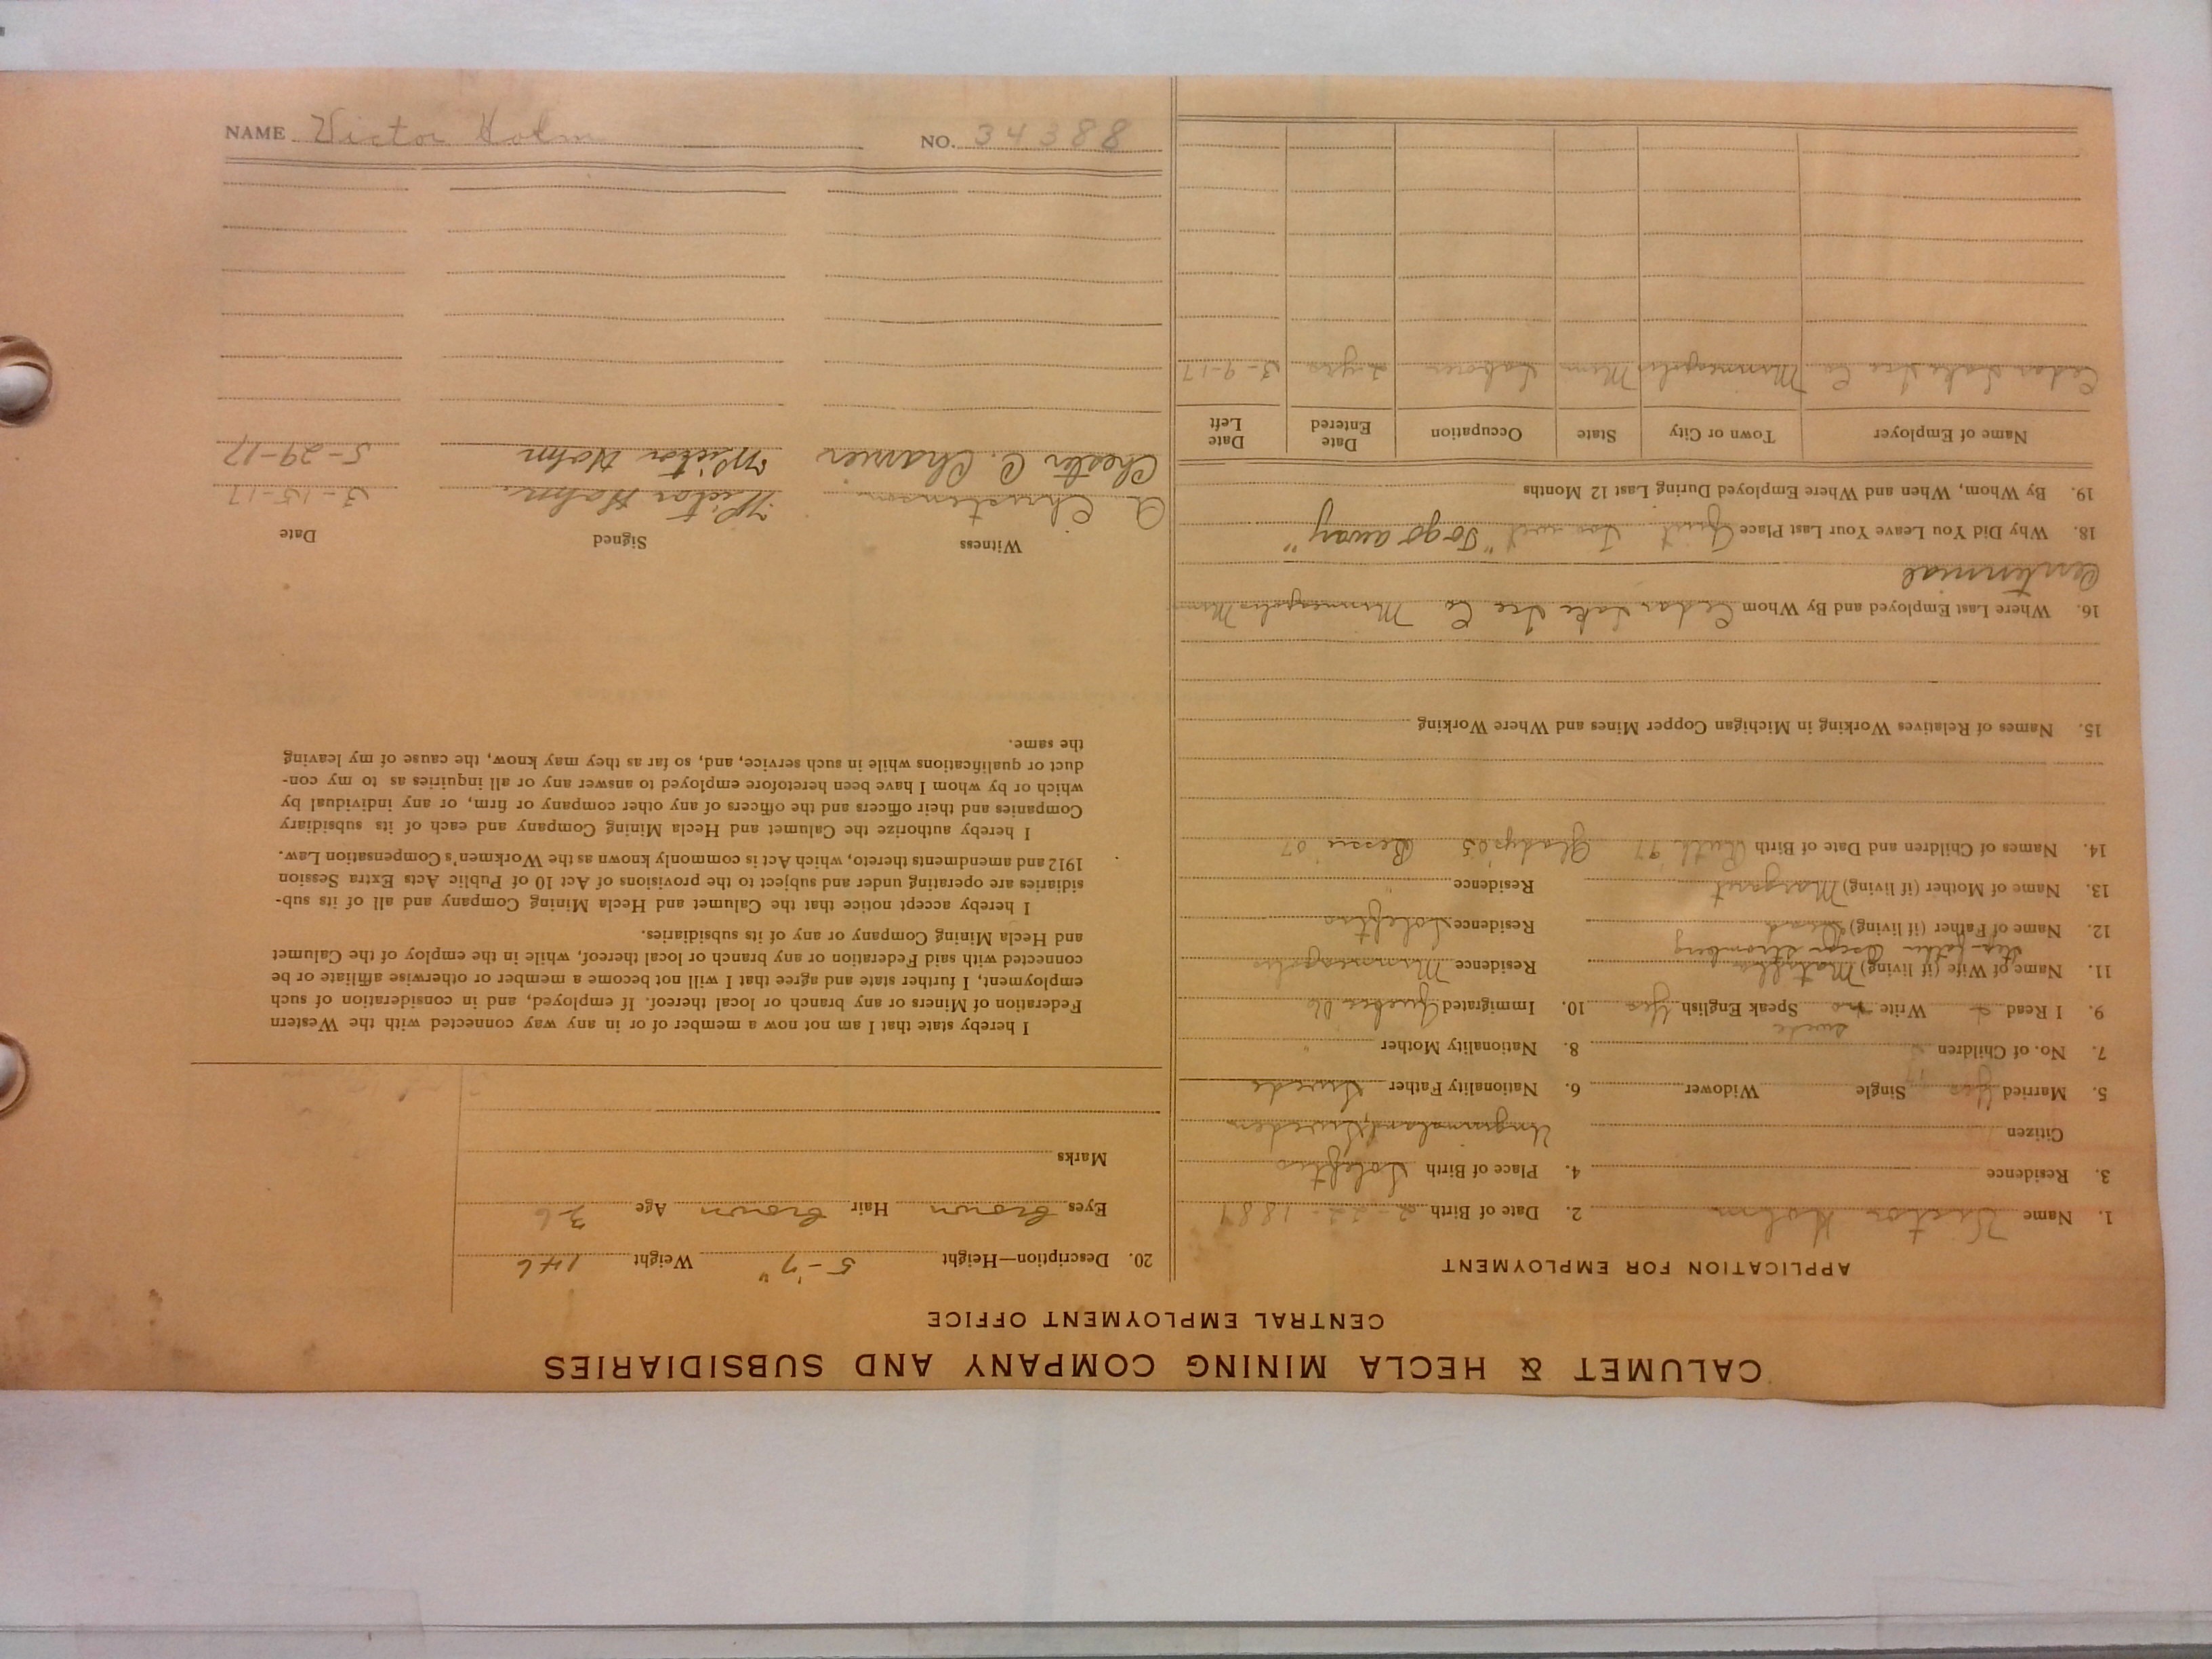 CALUMET & HECLA MINING COMPANY AND SUBSIDIARIES
CENTRAL EMPLOYMENT OFFICE
APPLICATION FOR EMPLOYMENT
1. Name Victor Holm 2. Date of Birth
3. Residence 4. Place of Birth
Citizen Sweden
5. Married Yes Single Widower 6. Nationality Father Swede
7. No. of Children 8. Nationality Mother "
swede
9. I Read Write no Speak English Yes 10. Immigrated Quebec
11. Name of Wife (if living) Matilda Residence Minneapolis
Step-father Oscar Stromberg
12. Name of Father (if living) Residence
13. Name of Mother (if living) Margaret Residence "
14. Names of Children and Date of Birth Ruth Gladys '05 Bessie '07
15. Names of Relatives Working in Michigan Copper Mines and Where Working
16. Where Last Employed and By Whom Cedar Lake Ice Co. Minneapolis Minn
Centennial
18. Why Did You Leave Your Last Place Quit Too wet "To go away"
19. By Whom, When and Where Employed During Last 12 Months
Name of Employer Town or City State Occupation Date Entered Date Left
Cedar Lake Ice Co. Minneapolis Minn Laborer 2 yrs 3-9-17
20. Description—Height 5-7" Weight 146
Eyes Brown Hair Brown Age 36
Marks
I hereby state that I am not now a member of or in any way connected with the Western
Federation of Miners or any branch or local thereof. If employed, and in consideration of such
employment, I further state and agree that I will not become a member or otherwise affiliate or be
connected with said Federation or any branch or local thereof, while in the employ of the Calumet
and Hecla Mining Company or any of its subsidiaries.
I hereby accept notice that the Calumet and Hecla Mining Company and all of its sub-
sidiaries are operating under and subject to the provisions of Act 10 of Public Acts Extra Session
1912 and amendments thereto, which Act is commonly known as the Workmen's Compensation Law.
I hereby authorize the Calumet and Hecla Mining Company and each of its subsidiary
Companies and their officers and the officers of any other company or firm, or any individual by
which or by whom I have been heretofore employed to answer any or all inquiries as to my con-
duct or qualifications while in such service, and, so far as they may know, the cause of my leaving
the same.
Witness Signed Date
A Christenson Victor Holm. 3-15-17
Chester C. Charrier Victor Holm 5-29-17
NAME Victor Holm NO. 34388